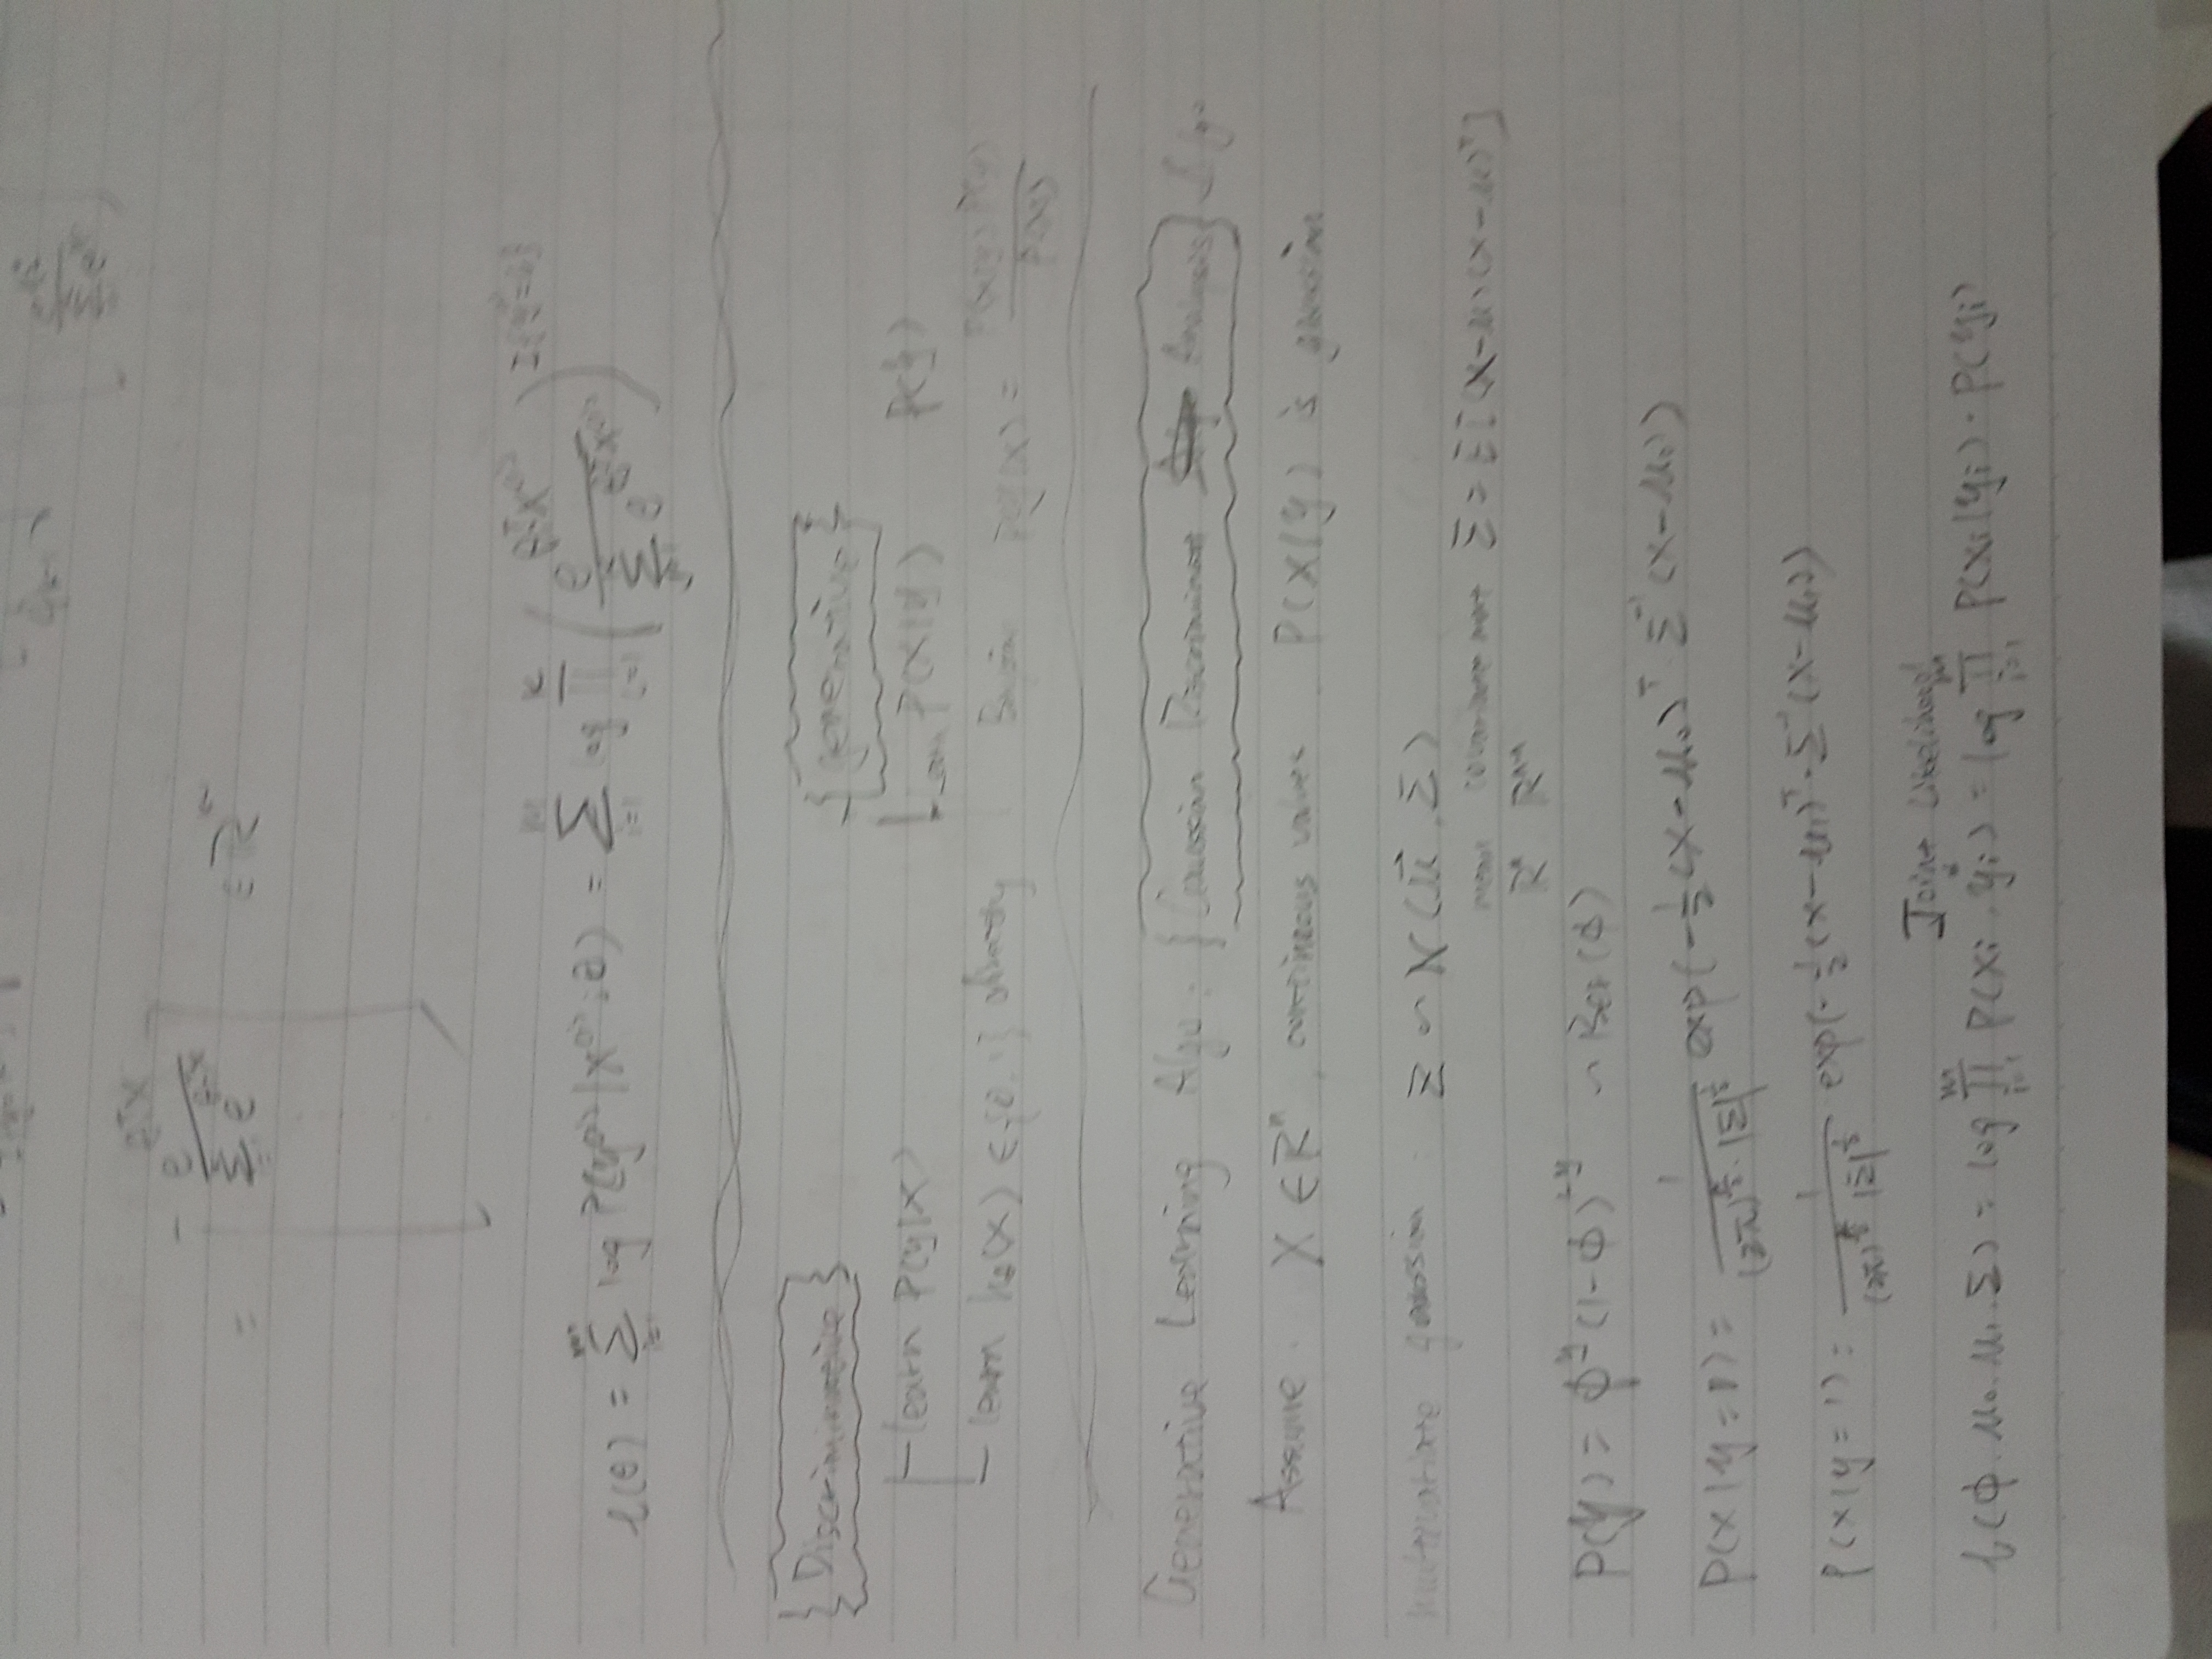 = [ e^{θᵀx} / Σ e^{θᵀx} ] ∈ R
l(θ) = Σ_{i=1}^{m} log P(y⁽ⁱ⁾|x⁽ⁱ⁾;θ) = Σ_{i=1}^{m} log Π_{l=1}^{k} ( e^{θᵀx⁽ⁱ⁾} / Σ e^{θᵀx⁽ⁱ⁾} )
Discriminative generative
learn P(y|x) Learn P(x|y) P(y)
learn hθ(x) ∈ {0,1} directly P(y|x) = P(x|y) P(y) / P(x)
Generative Learning Algo: {Gaussian Discriminant Analysis}
Assume. X ∈ Rⁿ, continuous values. P(x|y) is gaussian
multivariate gaussian : Z ~ N(μ⃗, Σ)
mean covariance Σ = E[(x-μ)(x-μ)ᵀ]
Rⁿ Rⁿˣⁿ
P(y) = ϕ^y (1-ϕ)^{1-y} ~ Ber(ϕ)
P(x|y=0) = 1 / ((2π)^{n/2} · |Σ|^{1/2}) exp(-½(x-μ₀)ᵀ · Σ⁻¹(x-μ₀))
P(x|y=1) = 1 / ((2π)^{n/2} |Σ|^{1/2}) exp(-½(x-μ₁)ᵀ · Σ⁻¹(x-μ₁))
Joint Likelihood
l(ϕ, μ₀, μ₁, Σ) = log Π_{i=1}^{m} P(xi, yi) = log Π_{i=1}^{m} P(xi|yi) · P(yi)